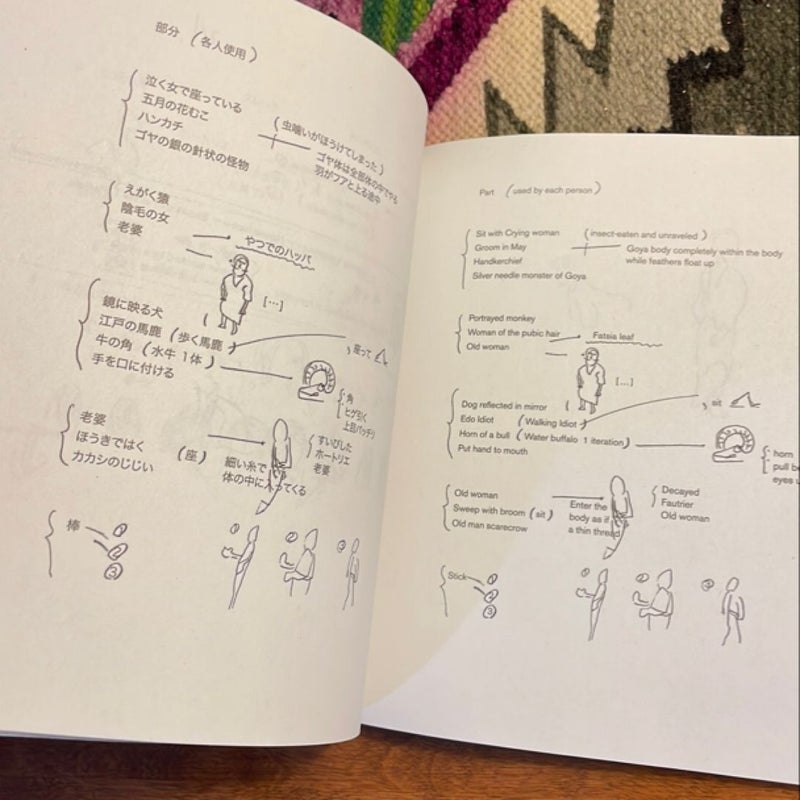 部分 (各人使用)
泣く女で座っている
五月の花むこ
ハンカチ
ゴヤの銀の針状の怪物
(虫喰いがほうけてしまった)
ゴヤ体は全部体の中でやる
羽がファと上る途中
えがく猿
陰毛の女
老婆
やつでのハッパ
[...]
鏡に映る犬
江戸の馬鹿 (歩く馬鹿)
牛の角 (水牛 1体)
手を口に付ける
座って
角
ヒゲ引く
上目パッチリ
老婆
ほうきではく (座)
カカシのじじい
細い糸で
体の中に入ってくる
すいびした
ホートリエ
老婆
棒
①
②
③
① ② ③
Part (used by each person)
Sit with Crying woman
Groom in May
Handkerchief
Silver needle monster of Goya
(insect-eaten and unraveled)
Goya body completely within the body
while feathers float up
Portrayed monkey
Woman of the pubic hair
Old woman
Fatsia leaf
[...]
Dog reflected in mirror
Edo Idiot (Walking Idiot)
Horn of a bull (Water buffalo 1 iteration)
Put hand to mouth
sit
horn
pull be
eyes u
Old woman
Sweep with broom (sit)
Old man scarecrow
Enter the
body as if
a thin thread
Decayed
Fautrier
Old woman
Stick
①
②
③
① ② ③